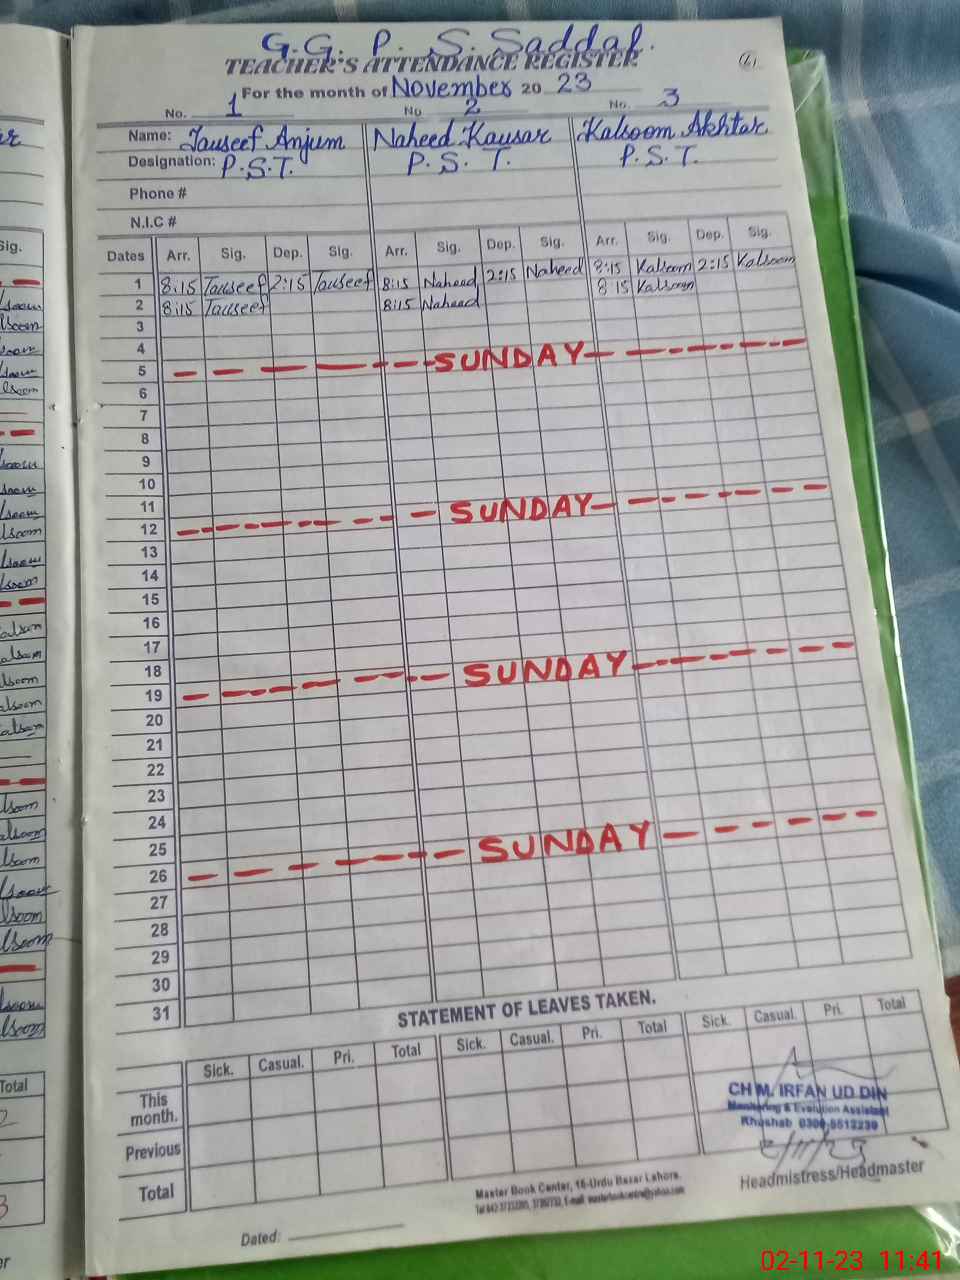 G.G. P. S. Saddal.
TEACHER'S ATTENDANCE REGISTER
For the month of November 20 23
No. 1 No 2 No. 3
Name: Tauseef Anjum Naheed Kausar Kalsoom Akhtar
Designation: P.S.T. P. S. T. P. S. T.
Phone #
N.I.C #
Dates Arr. Sig. Dep. Sig. Arr. Sig. Dep. Sig. Arr. Sig. Dep. Sig.
1 8:15 Tauseef 2:15 Tauseef 8:15 Naheed 2:15 Naheed 8:15 Kalsoom 2:15 Kalsoom
2 8:15 Tauseef 8:15 Naheed 8:15 Kalsoom
3
4
5 SUNDAY
6
7
8
9
10
11
12 SUNDAY
13
14
15
16
17
18
19 SUNDAY
20
21
22
23
24
25
26 SUNDAY
27
28
29
30
31
STATEMENT OF LEAVES TAKEN.
Sick. Casual. Pri. Total Sick. Casual. Pri. Total Sick. Casual. Pri. Total
This month.
Previous
Total
CH M. IRFAN UD DIN
Monitoring & Evalution Assistant
Khushab
2/11/23
Headmistress/Headmaster
Master Book Center, 16-Urdu Bazar Lahore.
Dated:
02-11-23 11:41